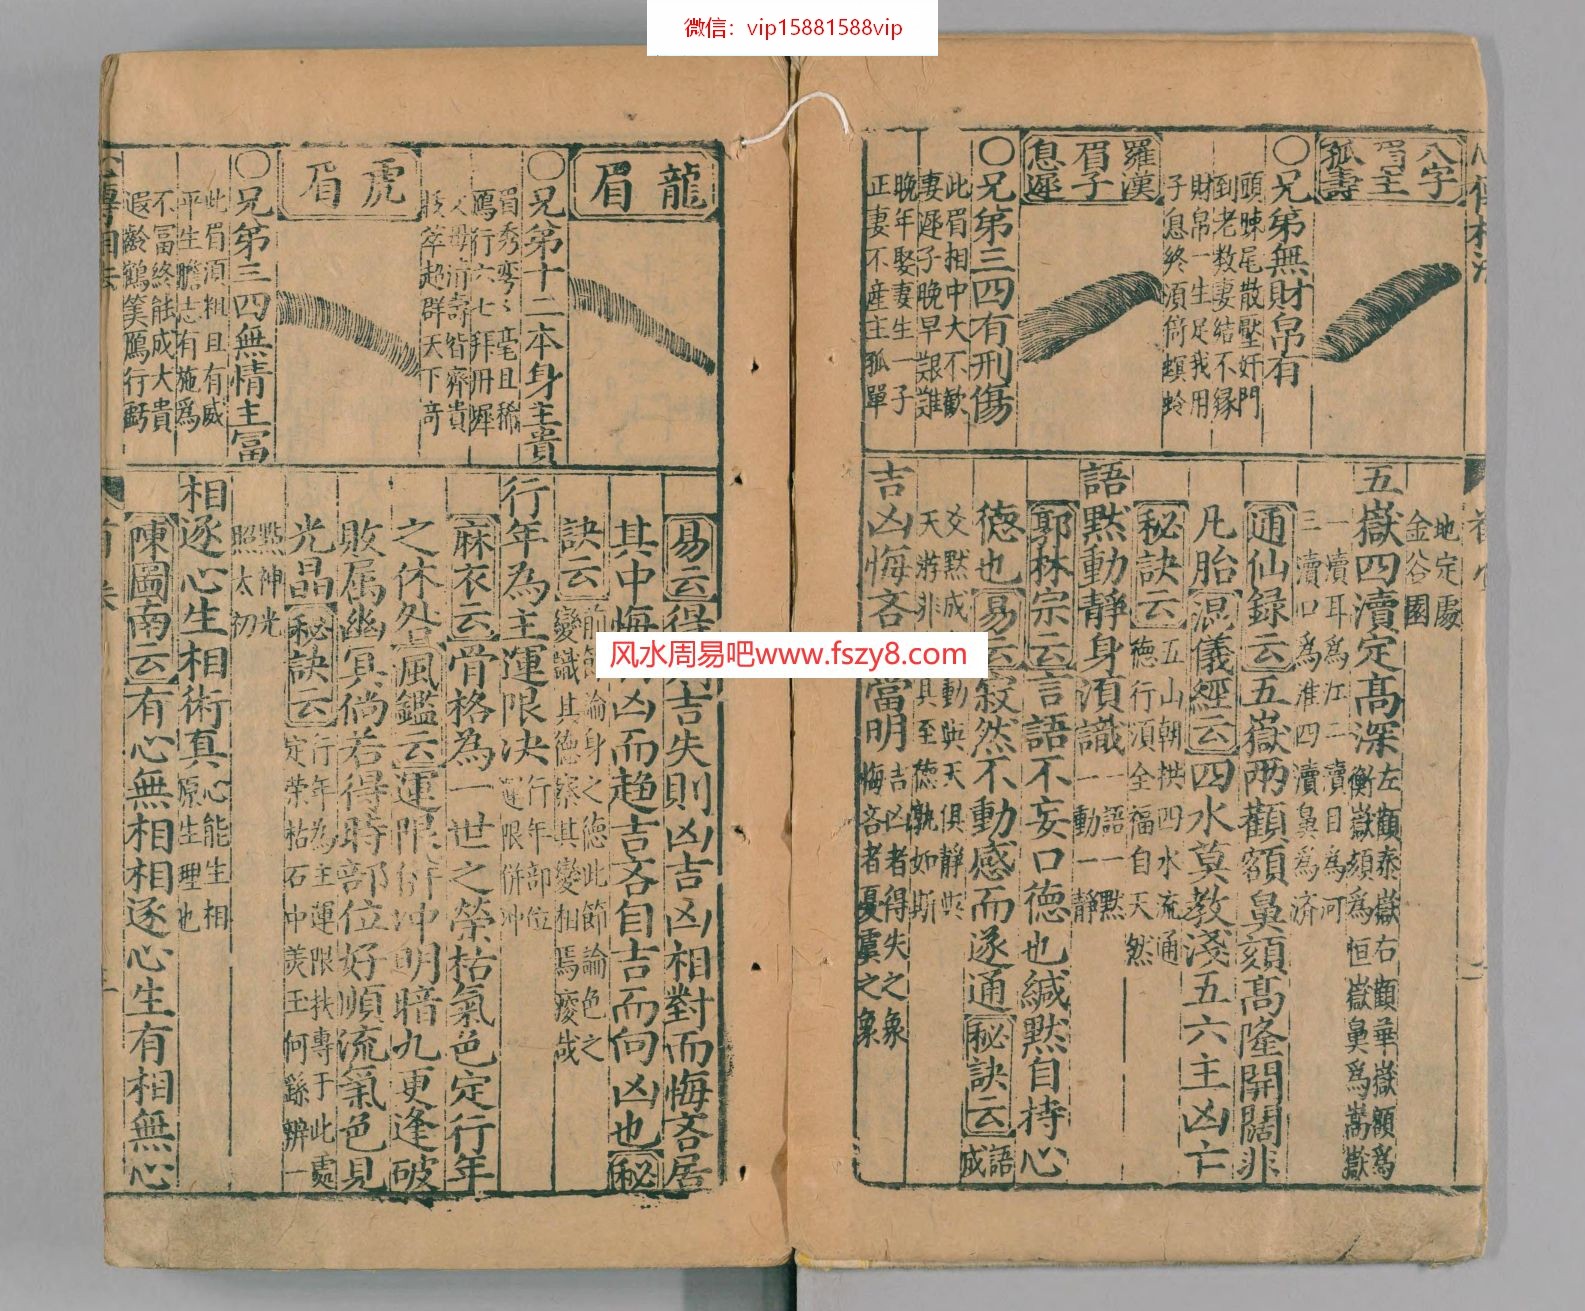 微信：vip15881588vip
八字
眉主
孤壽
〇兄第無財帛有
頭踈尾散壓奸門
到老数妻結不縁
財帛一生足我用
子息終湏倚螟蛉
羅漢
眉子
息遲
〇兄第三四有刑傷
此眉相中大不歡
妻遲子晚早艱難
晚年娶妻生一子
正妻不産主孤單
地定處
金谷園
五嶽四瀆定髙深
左顴泰嶽右顴華嶽額爲
衡嶽頦爲恒嶽鼻爲嵩嶽
一瀆耳爲江二瀆目爲河
三瀆口爲淮四瀆鼻爲济
通仙録云五嶽兩顴額鼻頦髙隆開闊非
凡胎混儀經云四水莫教淺五六主凶亡
秘訣云
五山朝拱四水流通
德行湏全福自天然
語黙動靜身湏識
一語一黙
一動一靜
郭林宗云言語不妄口德也緘黙自持心
德也易云寂然不動感而遂通秘訣云
語
成
爻黙成
動與天俱靜與
天游非
具至德孰如斯
吉凶悔吝
當明
吉凶者得失之象
悔吝者憂虞之象
龍
眉
〇兄第十二本身主貴
眉秀弯〻毫且稀
鴈行六七拜丹墀
父母清壽皆齊貴
萃超群天下奇
虎
眉
〇兄第三四無情主冨
此眉湏粗且有威
平生膽志有施爲
不冨終能成大貴
遐齡鶴筭鴈行虧
易云得
吉失則凶吉凶相對而悔吝居
其中悔
凶而趋吉吝自吉而向凶也秘
訣云
論身之德此節論色之
變識其德察其變相焉廋哉
行年為主運限决
行年部位
運限併冲
麻衣云骨格為一世之榮枯氣色定行年
之休咎風鑑云運限併冲明暗九更逢破
敗属幽冥倘若得時部位好順流氣色見
光晶秘訣云
行年為主運限扶專于此處
定荣枯石中美玉何繇辨一
點神光
照太初
相逐心生相術真
心能生相
原生理也
陳圖南云有心無相相逐心生有相無心
风水周易吧www.fszy8.com